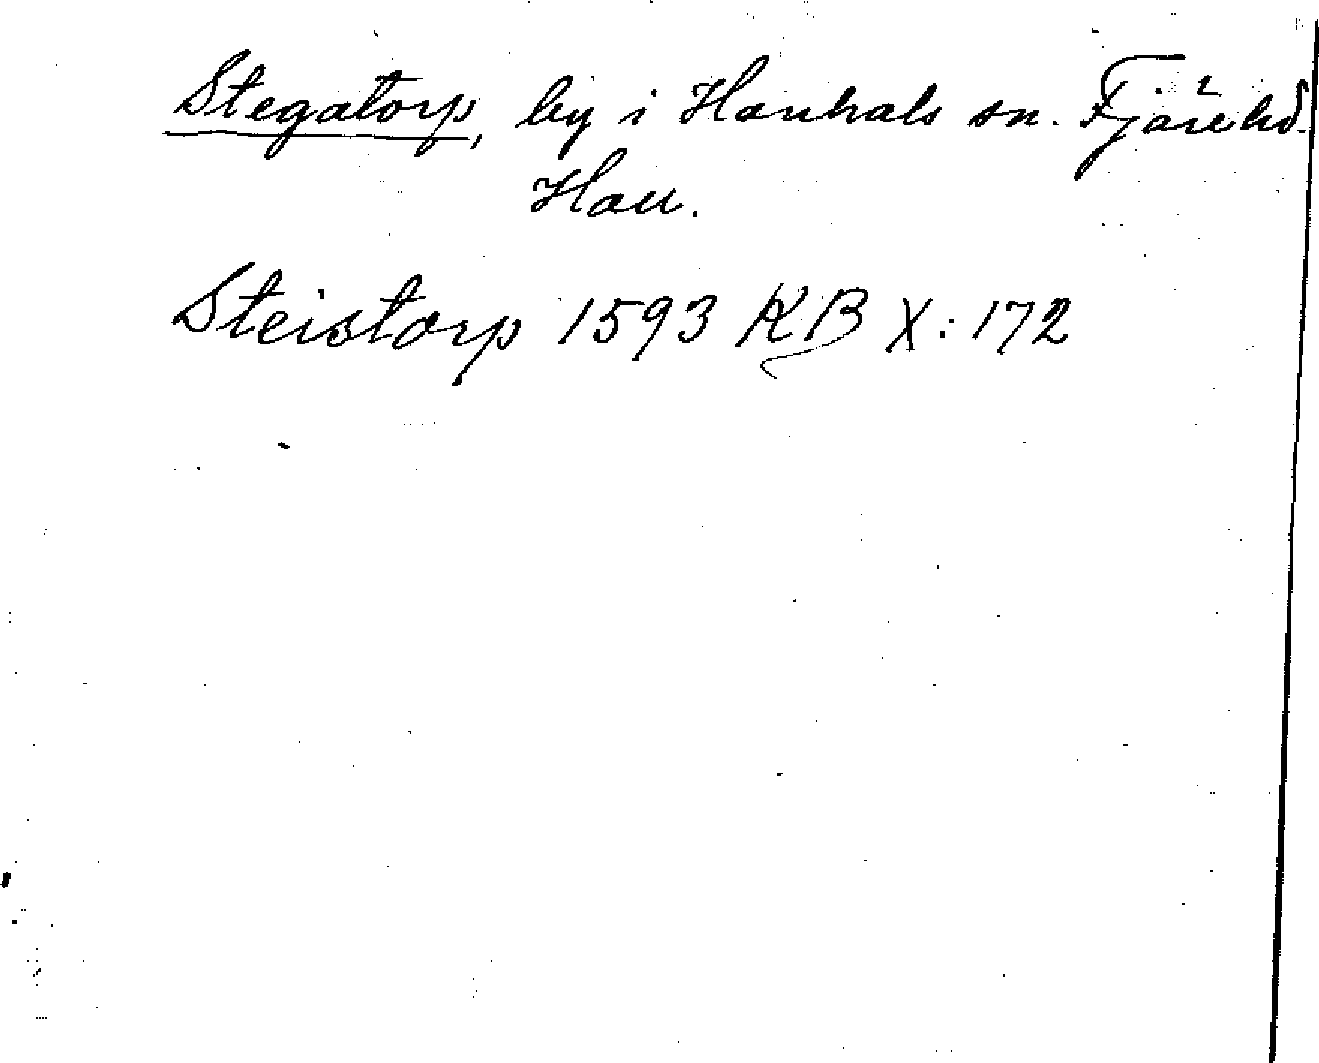 Stegatorp, by i Hanhals sn. Fjäre hd.
Hall.
Steistorp 1593 KB X: 172